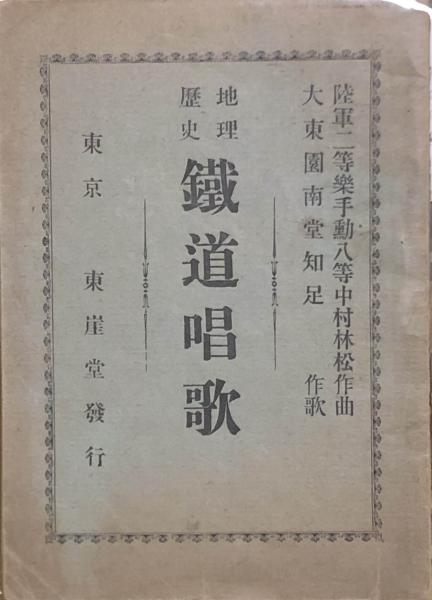 陸軍二等樂手勳八等中村林松作曲
大東園南堂知足 作歌
地理
歷史
鐵道唱歌
東京 東崖堂發行